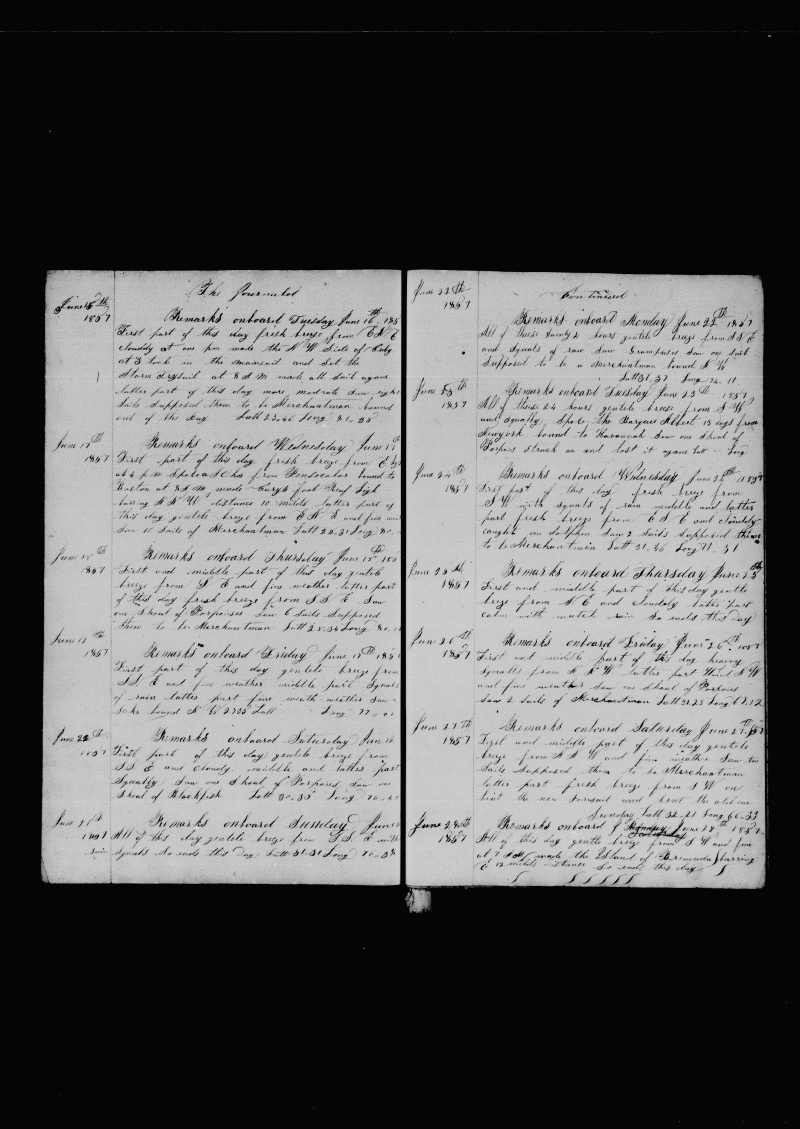 The Journal
June 16th
1857
Remarks onboard Tuesday June 16th 185
First part of this day fresh breeze from E N E
Cloudy at one pm made the N W Side of Cuby
at 3 took in the mainsail and set the
Storm Trysail at 8 A M made all sail again
latter part of this day more modrate Saw eight
Sails Supposed them to be Merchantman bound
out of the Bay Latt 23.45 Long 81.35
June 17th
1857
Remarks onboard Wednesday June 17
First part of this day fresh breeze from E by
at 4 p m Spoke a from Pensocolar bound to
Boston at 8 A M made foot Reef Ligh
baring N N W distance 10 miles latter part of
this day gentele breeze from E N E and fine
Saw 10 Sails of Merchantman Latt 25.31 Long 80
June 18th
1857
Remarks onboard Thursday June 18th 185
First and middle part of this day gentele
breeze from S E and fine weather latter part
of this day fresh breeze from S S E Saw
one Shoal of Porpoises Saw 6 Sails Supposed
them to be Merchantman Latt 28.34 Long 80
June 19th
1857
Remarks onboard Friday June 19th 185
First part of this day gentele breeze from
S S E and fine weather middle part Squals
of rain latter part fine weath weather Saw
bound N W 2955 Latt Long 77
June
1857
Remarks onboard Saturday Jun
First part of this day gentele breeze from
S S E and cloudy middle and latter part
Squally Saw one Shoal of Porpoises Saw one
Shoal of Blackfish Latt 30 Long 76
June 21th
Remarks onboard Sunday June
All of this day gentele breeze from S S E with
rain
Squals So ends this day Latt 31.31 Long 75.38
June 22th
1857
Continued
Remarks onboard Monday June 22th 1857
All of these twenty 2 hours gentele breze from S S E
and Squals of rain Saw Grampuses Saw one Sail
Supposed to be a Merchantman bound N W
Latt 31.37 Long 74.11
June 23th
1857
Remarks onboard Tuesday June 23th 1857
All of these 24 hours gentele breze from S W
and Squally Spoke the Barque Albert 13 days from
Newyork bound to Havannah Saw one Shoal of
Porpoises Struck on and lost it again Latt Long
June 24th
1857
Remarks onboard Wednesday June 24th 1857
First part of this day fresh breeze from
S W with Squals of rain middle and latter
part fresh breeze from E S E and Cloudy
caught on dolphin Saw 2 Sails Supposed them
to be Merchantmin Latt 31.36 Long 71.31
June 25th
1857
Remarks onboard Thursday June 25th
First and middle part of this day gentele
breze from S E and Cloudoly latter part
calm with match rain So ends this day
June 26th
1857
Remarks onboard Friday June 26th
First and middle part of this day heavy
squalls from N N W latter part Wind N W
and fine weather Saw one Shoal of Porpoises
Saw 2 Sails of Merchantman Latt 31.23 Long 68.12
June 27th
1857
Remarks onboard Saturday June 27th 1857
First and middle part of this day gentele
breze from S S W and fine weather Saw two
Sails Supposed them to be Merchantman
latter part fresh breeze from S W on
bent the new Forsail and bent the old one
Sunday Latt 32.21 Long 66.33
June 28th
1857
Remarks onboard June 28th 1857
All of this day gentle breze from S W and fine
at 7 A M made the Island of Bermuda barring
E 12 mils distance So ends this day